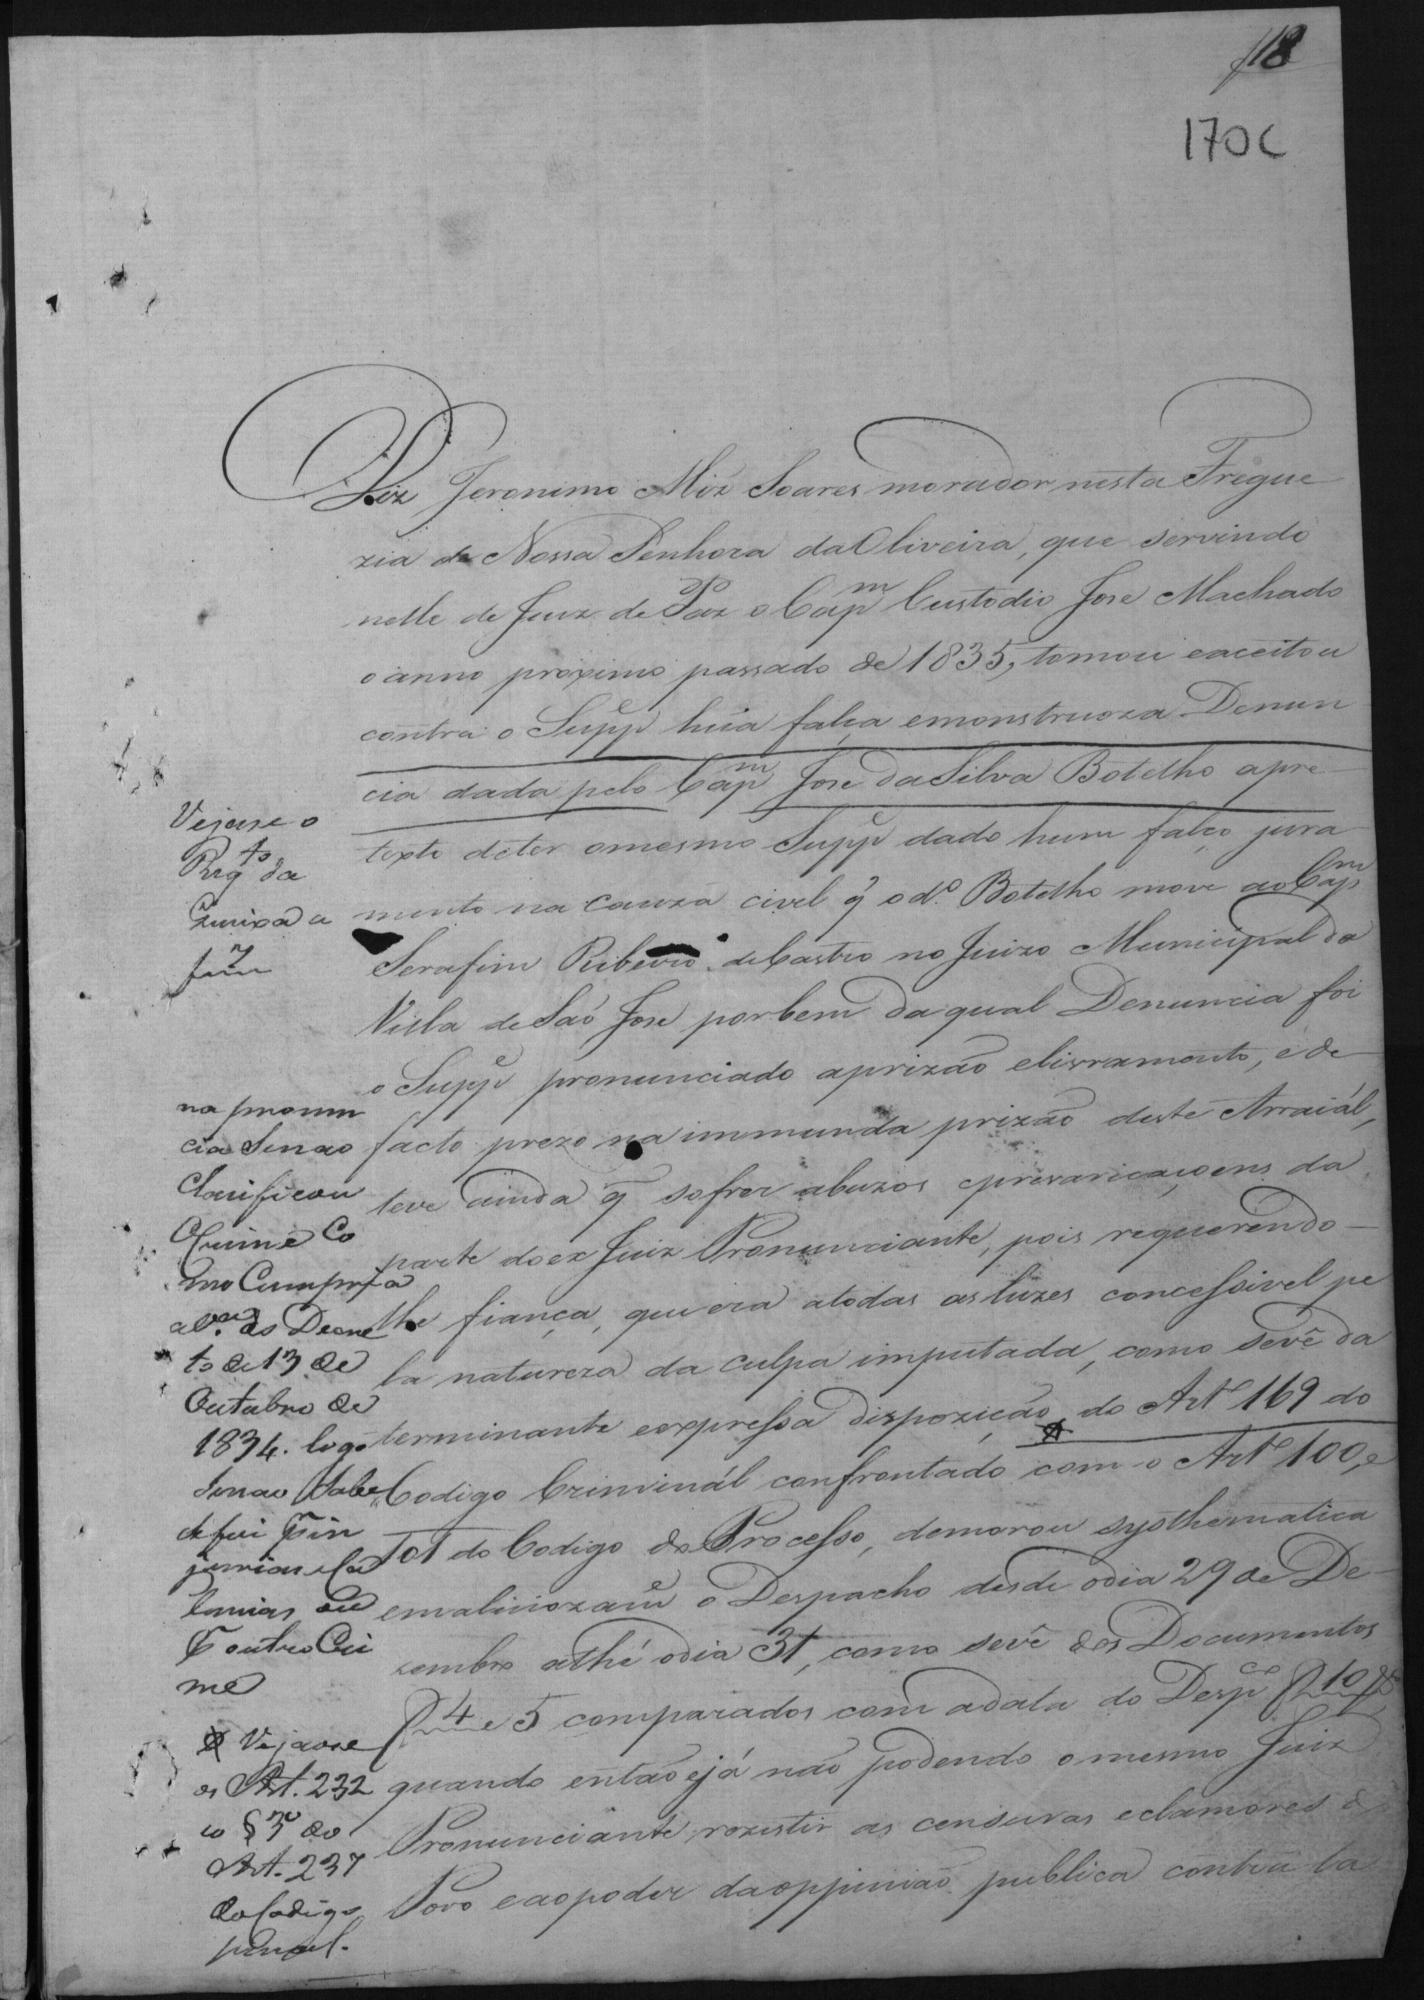 18
170C
Diz Jeronimo Miz Soares morador nesta Fregue
zia de Nossa Senhora da Oliveira, que servindo
nella de Juiz de Paz o Capm Custodio Jose Machado
o anno proximo passado de 1835, tomou e acceitou
contra o Suppe hũa falça e monstruoza Denun
cia dada pelo Capm Jose da Silva Botelho a pre
texto de ter o mesmo Suppe dado hum falço jura
mento na cauza civel q̃ o do. Botelho move ao Capm
Serafim Ribeiro de Castro no Juizo Municipal da
Villa de São Jose por bem da qual Denuncia foi
o Suppe pronunciado a prizão e livramento, e de
facto prezo na immunda prizão deste Arraiál,
teve ainda q̃ sofrer abuzos e prevaricaçoens da
parte do ex Juiz Pronunciante, pois requerendo-
lhe fiança, que era a todas as luzes concessivel pe
la natureza da culpa imputada, como se vê da
terminante e expressa dispozição do Arto 169 do
Codigo Criminál confrontado com o Arto 100, e
101 do Codigo do Processo, demorou systhematica
e maliciozame o Despacho desde o dia 29 de De-
zembro athé o dia 31, como se vê dos Documentos
f 4 e 5 comparados com a data do Despco f 10
quando então já não podendo o mesmo Juiz
Pronunciante rezistir as censuras e clamores do
Povo e ao poder da oppinião publica contra ta
Vejase o
Reqto da
queixa a
na pronun
cia se nao
Clarificou
o Crime Co
mo Cumpria
a vta do Decre
to de 13 de
Outubro de
1834. logo
se nao Sabe
se foi p in
jurias e Ca
lunias ou
p outro Cri
me
Vejaose
os Art. 232
e o § 3o do
Art. 237
do Codigo
penal.